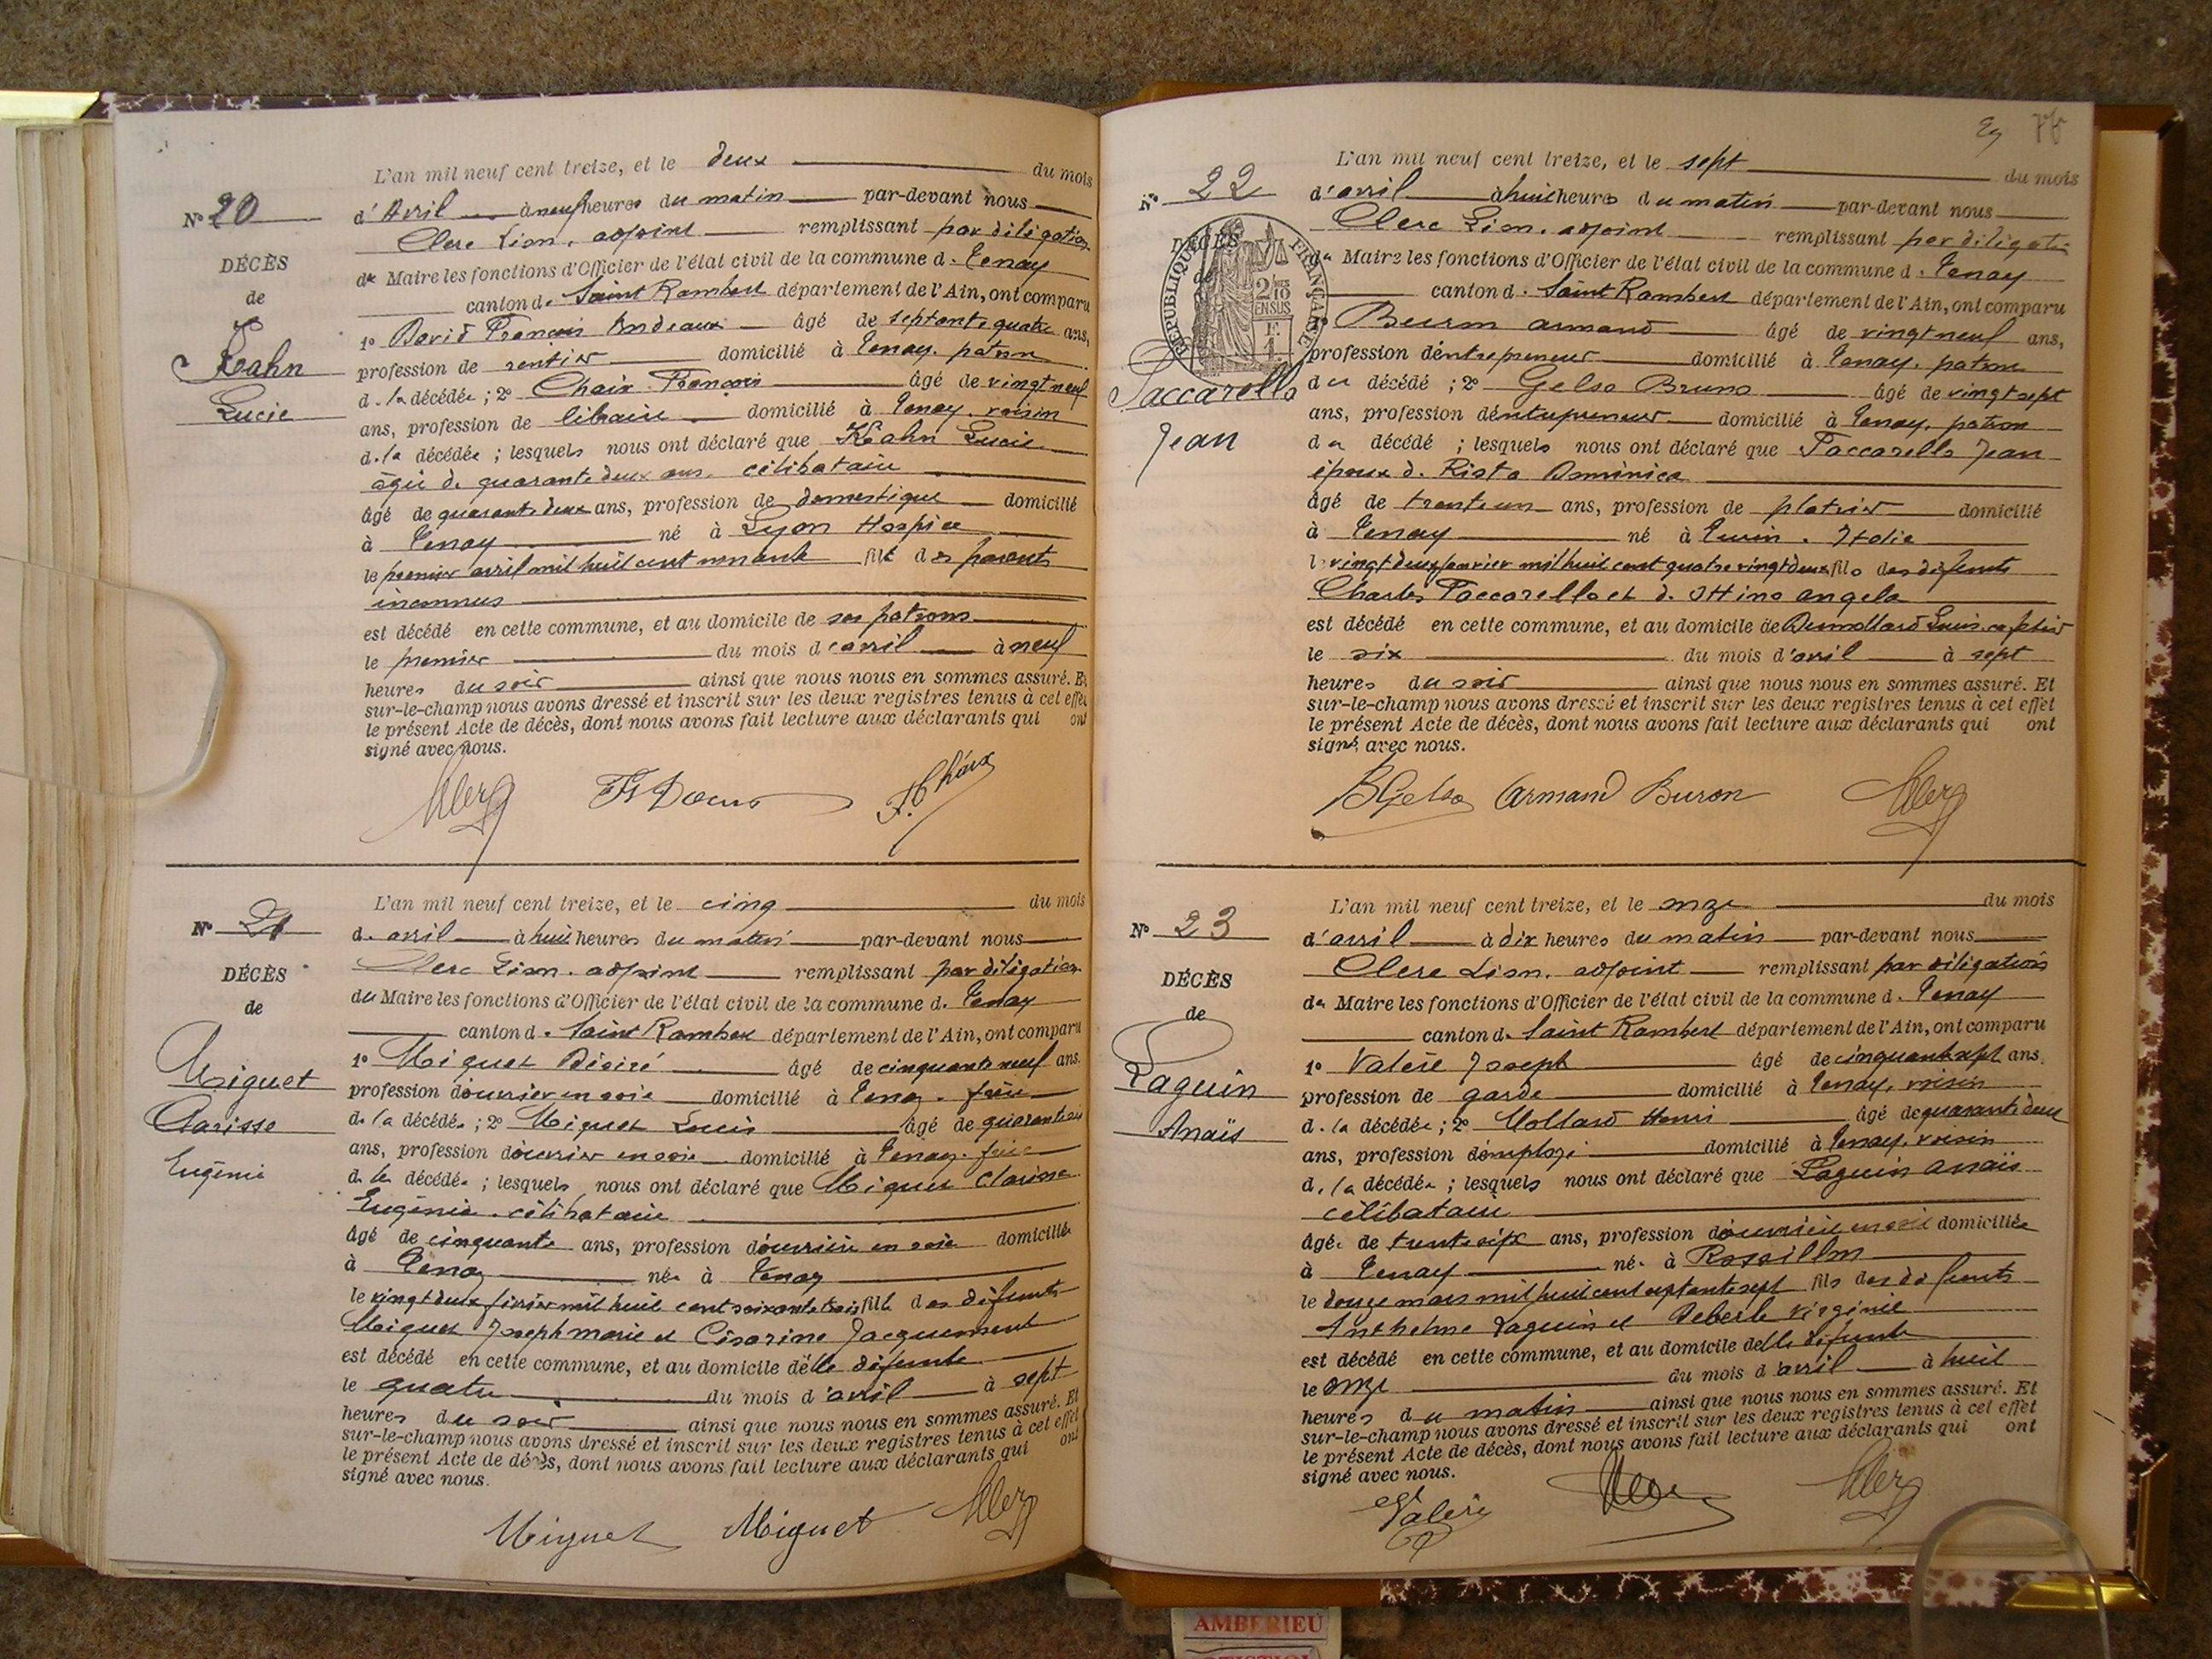 L'an mil neuf cent treize, et le deux du mois
N° 20
d'Avril à neuf heures du matin par-devant nous
Clerc Léon, adjoint remplissant par délégation
DÉCÈS
du Maire les fonctions d'Officier de l'état civil de la commune d. Tenay
de
canton d. Saint Rambert département de l'Ain, ont comparu
Kahn
Lucie
1° David François âgé de septante quatre ans,
profession de rentier domicilié à Tenay, patron
d. la décédée ; 2° Chaix François âgé de vingt neuf
ans, profession de libraire domicilié à Tenay, voisin
d. la décédée ; lesquels nous ont déclaré que Kahn Lucie
âgée de quarante deux ans, célibataire
âgé de quarante deux ans, profession de domestique domicilié
à Tenay né à Lyon Hospice
le premier avril mil huit cent fille des parents
inconnus
est décédé en cette commune, et au domicile de ses patrons
le premier du mois d'avril à neuf
heures du soir ainsi que nous nous en sommes assuré. Et
sur-le-champ nous avons dressé et inscrit sur les deux registres tenus à cet effet
le présent Acte de décès, dont nous avons fait lecture aux déclarants qui ont
signé avec nous.
Clerc F. Chaix
L'an mil neuf cent treize, et le cinq du mois
N° 21
d. avril à huit heures du matin par-devant nous
Clerc Léon, adjoint remplissant par délégation
DÉCÈS
du Maire les fonctions d'Officier de l'état civil de la commune d. Tenay
de
canton d. Saint Rambert département de l'Ain, ont comparu
Miguet
Clarisse
Eugénie
1° Miguet Désiré âgé de cinquante neuf ans.
profession d'ouvrier en soie domicilié à Tenay, frère
d. la décédée ; 2° Miguet Louis âgé de quarante
ans, profession d'ouvrier en soie domicilié à Tenay, frère
d. la décédée ; lesquels nous ont déclaré que Miguet Clarisse
Eugénie, célibataire
âgé de cinquante ans, profession d'ouvrière en soie domiciliée
à Tenay née à Tenay
le vingt deux février mil huit cent soixante trois fille des défunts
Miguet Joseph marie et Césarine Jacquemont
est décédé en cette commune, et au domicile de la défunte
le quatre du mois d'avril à sept
heures du soir ainsi que nous nous en sommes assuré. Et
sur-le-champ nous avons dressé et inscrit sur les deux registres tenus à cet effet
le présent Acte de décès, dont nous avons fait lecture aux déclarants qui ont
signé avec nous.
Miguet Miguet Clerc
L'an mil neuf cent treize, et le sept du mois
N° 22
d'avril à huit heures du matin par-devant nous
Clerc Léon, adjoint remplissant par délégation
DÉCÈS
de
RÉPUBLIQUE FRANÇAISE
2/10 EN SUS
du Maire les fonctions d'Officier de l'état civil de la commune d. Tenay
canton d. Saint Rambert département de l'Ain, ont comparu
Paccarello
Jean
Buron Armand âgé de vingt neuf ans,
profession d'entrepreneur domicilié à Tenay, patron
du décédé ; 2° Gelso Bruno âgé de vingt sept
ans, profession d'entrepreneur domicilié à Tenay, patron
du décédé ; lesquels nous ont déclaré que Paccarello Jean
époux d. Rista Dominica
âgé de trente un ans, profession de platrier domicilié
à Tenay né à Turin, Italie
le vingt deux janvier mil huit cent quatre vingt deux fils des défunts
Charles Paccarello et d. Ottino Angela
est décédé en cette commune, et au domicile de Dumollard Louis
le six du mois d'avril à sept
heures du soir ainsi que nous nous en sommes assuré. Et
sur-le-champ nous avons dressé et inscrit sur les deux registres tenus à cet effet
le présent Acte de décès, dont nous avons fait lecture aux déclarants qui ont
signé avec nous.
BGelso Armand Buron Clerc
L'an mil neuf cent treize, et le onze du mois
N° 23
d'avril à dix heures du matin par-devant nous
Clerc Léon, adjoint remplissant par délégation
DÉCÈS
du Maire les fonctions d'Officier de l'état civil de la commune d. Tenay
de
canton d. Saint Rambert département de l'Ain, ont comparu
Laguin
Anaïs
1° Valère Joseph âgé de cinquante sept ans.
profession de garde domicilié à Tenay, voisin
d. la décédée ; 2° Mollard Henri âgé de quarante deux
ans, profession d'employé domicilié à Tenay, voisin
d. la décédée ; lesquels nous ont déclaré que Laguin Anaïs
célibataire
âgée de trente six ans, profession d'ouvrière en soie domiciliée
à Tenay née à Rossillon
le douze mars mil huit cent septante sept fils des défunts
Anthelme Laguin et Deberle Virginie
est décédé en cette commune, et au domicile de la défunte
le onze du mois d'avril à huit
heures du matin ainsi que nous nous en sommes assuré. Et
sur-le-champ nous avons dressé et inscrit sur les deux registres tenus à cet effet
le présent Acte de décès, dont nous avons fait lecture aux déclarants qui ont
signé avec nous.
Valère Clerc
AMBERIEU